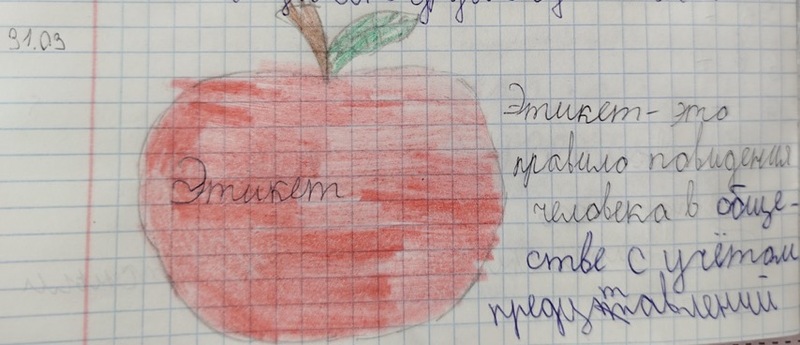 31.03
Этикет
Этикет - это
правило повидения
человека в обще-
стве с учётом